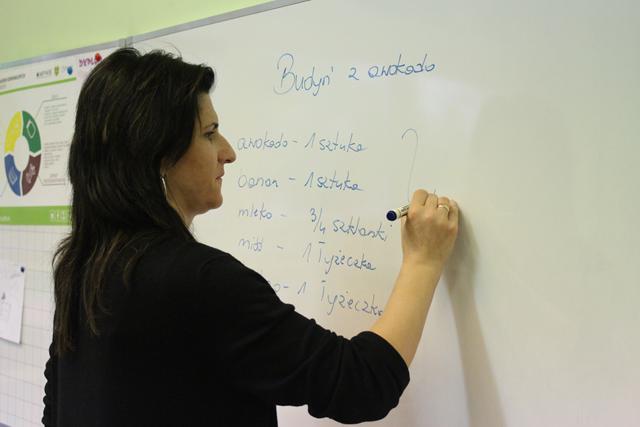 Budyń z awokado
awokado - 1 sztuka
banan - 1 sztuka
mleko - 3/4 szklanki
miód - 1 łyżeczka
- 1 łyżeczka